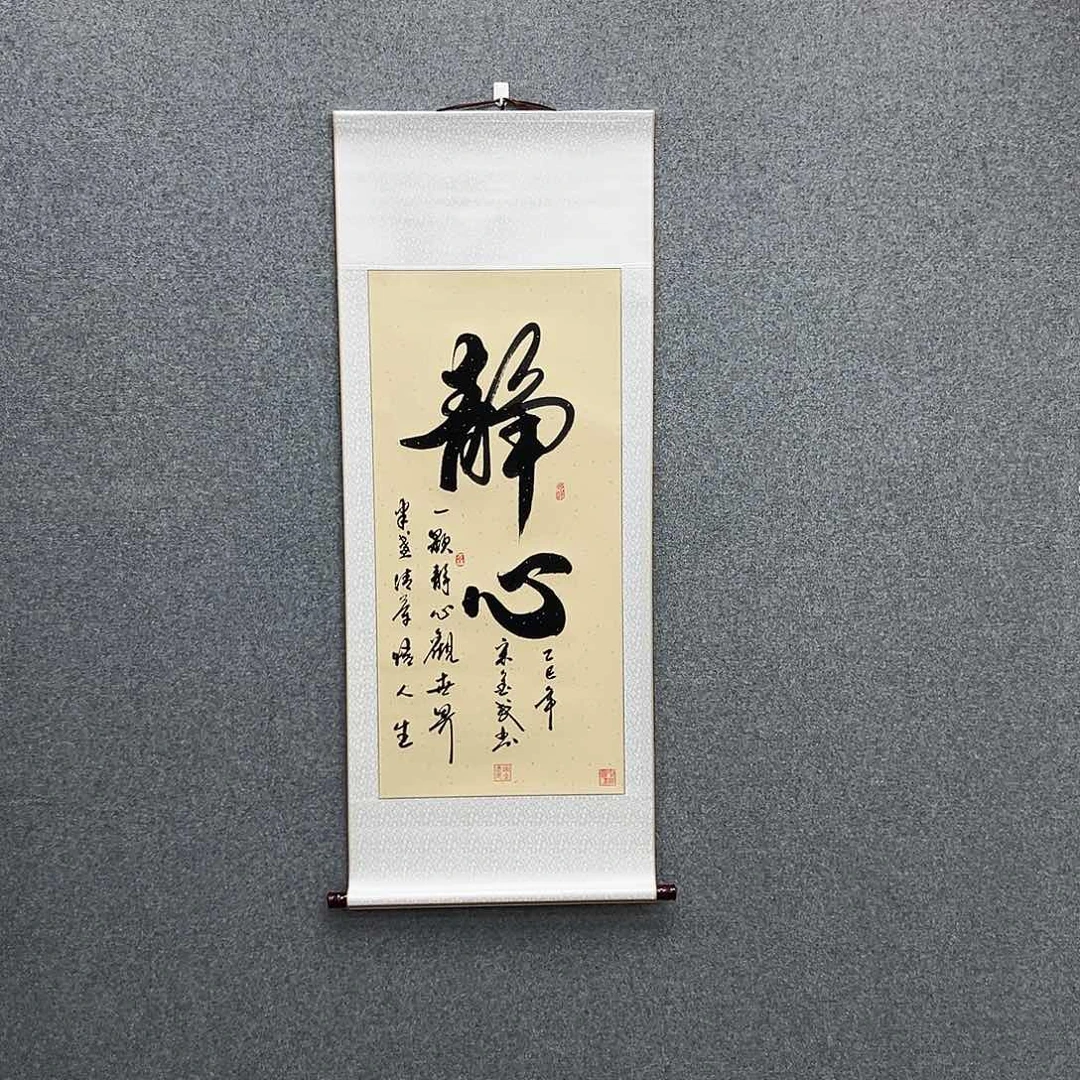 静心
乙巳年
宋金武书
一颗静心觀世界
半盏清茶悟人生